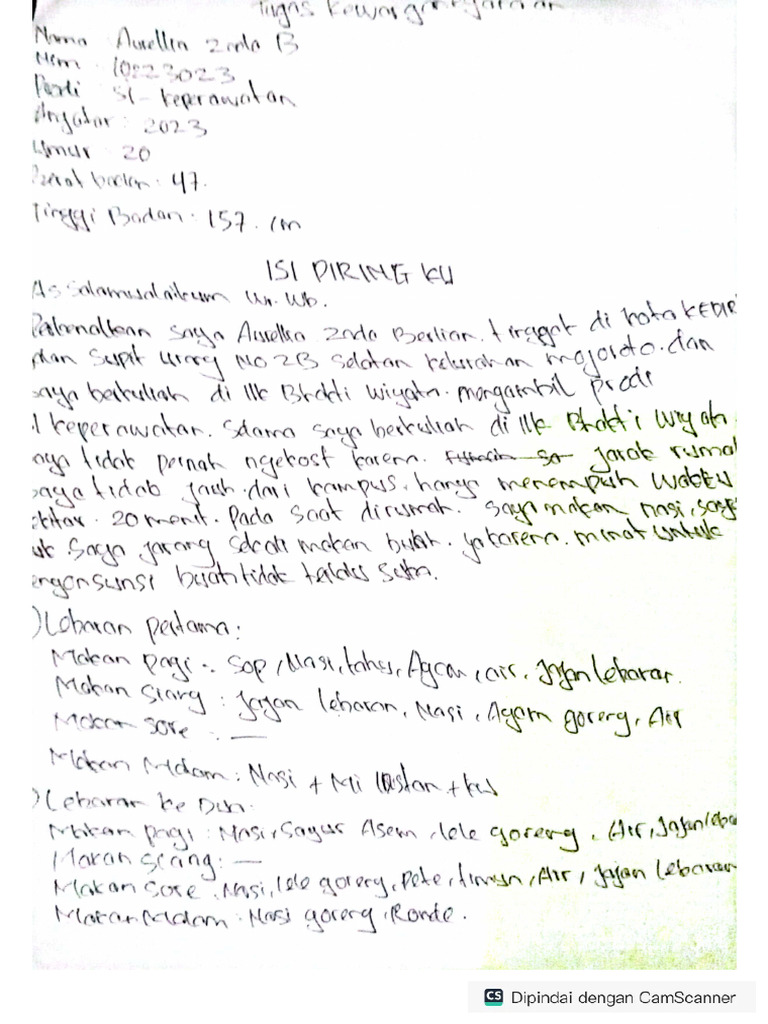 Tugas Kewarganegaraan
Nama Aurellia Zada B
Nim 10223023
Prodi S1-keperawatan
Angkatan: 2023
Umur 20
Berat badan: 47.
Tinggi Badan: 157. cm
ISI PIRING KU
Assalamualaikum Wr. Wb.
Perkenalkan saya Aurellia Zada Berlian. tinggal di kota KEDIRI
jalan Supit Urang NO 2B Selatan kelurahan mojoroto. dan
saya berkuliah di IIK Bhakti Wiyata. mengambil prodi
S1 keperawatan. Selama saya berkuliah di IIK Bhakti Wiyata
saya tidak pernah ngekost karena. jarak rumah
saya tidak jauh dari kampus, hanya menempuh waktu
sekitar 20 menit. Pada saat dirumah. Saya makan nasi, say
ur. Saya jarang sekali makan buah. ya karena. minat untuk
mengonsumsi buah tidak terlalu
) Lebaran pertama:
Makan pagi: Sop, Nasi, tahu, Ayam, air, Jajan lebaran.
Makan siang: Jajan lebaran, Nasi, Ayam goreng, Air
Makan sore: —
Makan Malam: Nasi + Mi
) Lebaran ke Dua.
Makan pagi: Nasi, Sayur Asem, lele goreng, Air, Jajan leba
Makan siang: —
Makan Sore: Nasi, lele goreng, Pete, timun, Air, Jajan Lebaran
Makan Malam: Nasi goreng, Ronde.
CS Dipindai dengan CamScanner